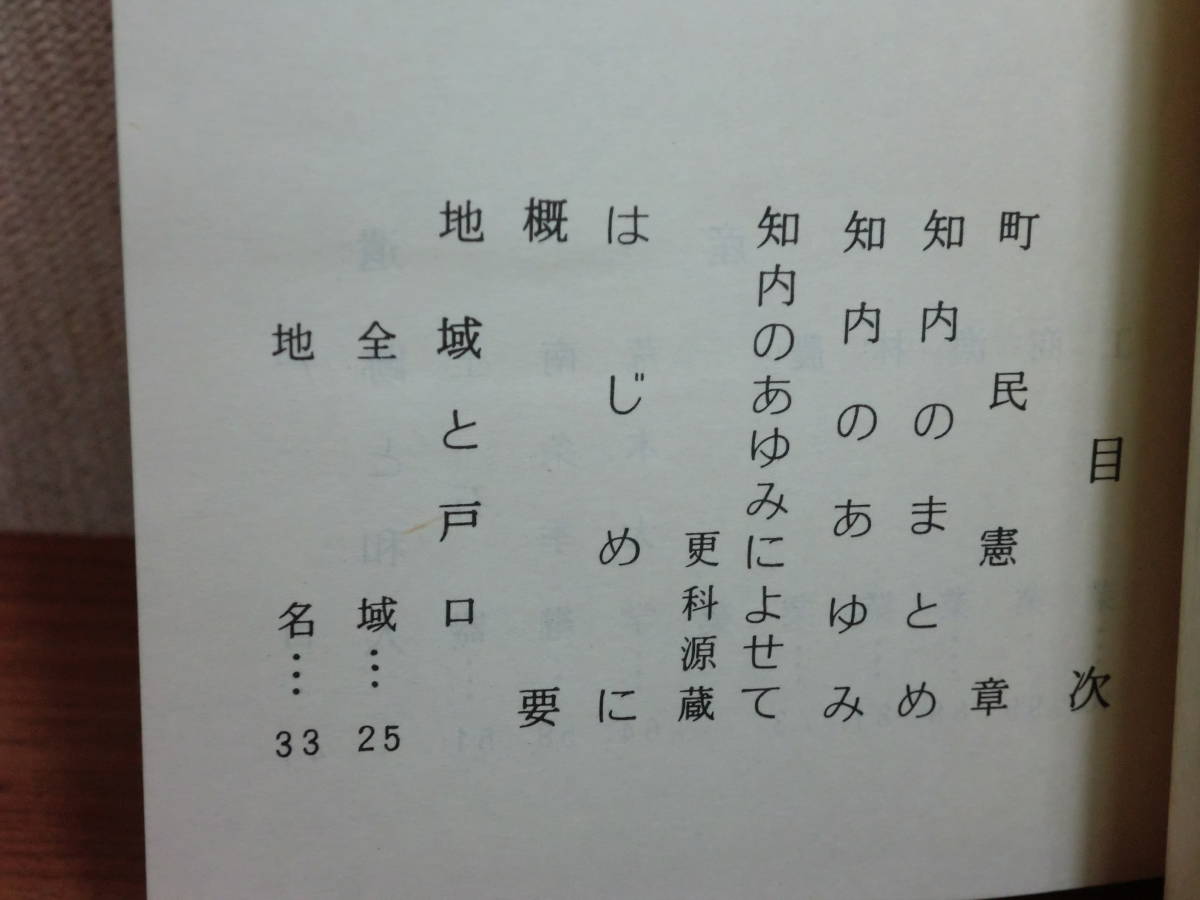 目次
町民憲章
知内のまとめ
知内のあゆみ
知内のあゆみによせて
更科源蔵
はじめに
概要
地域と戸口
全域…25
地名…33